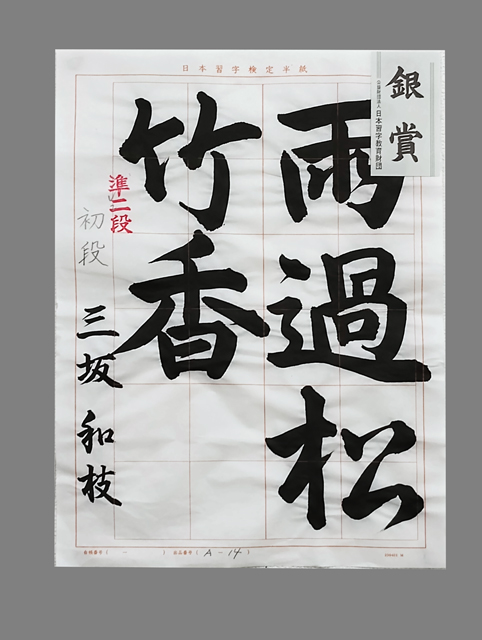 日本習字検定半紙
銀賞
公益財団法人 日本習字教育財団
雨過松
竹香
準二段
初段
三坂和枝
出品番号(A-14)